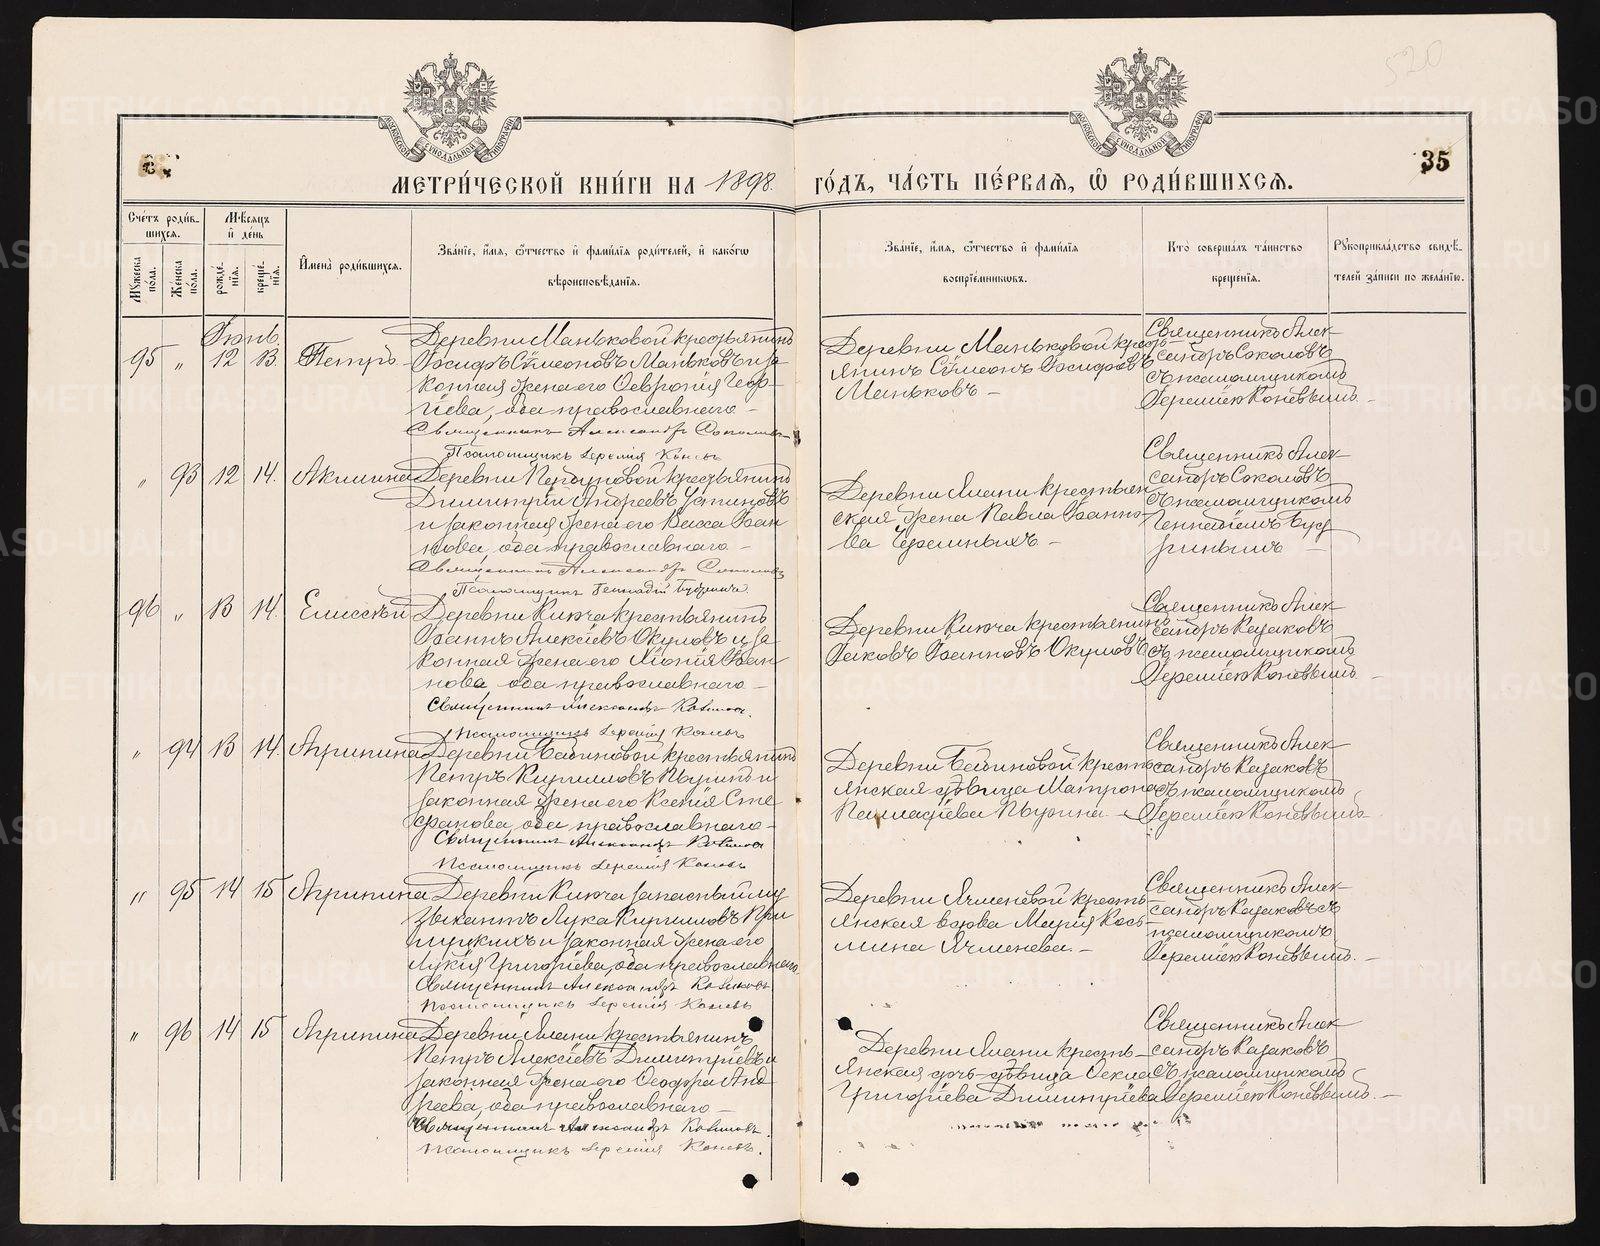 520
МОСКОВСКОЙ СУНОДАЛЬНОЙ ТИПОГРАФІИ
МОСКОВСКОЙ СУНОДАЛЬНОЙ ТИПОГРАФІИ
35
МЕТРИ́ЧЕСКОЙ КНИ́ГИ НА 1898. ГО́ДЪ, ЧА́СТЬ ПЕ́РВАѦ, Ѽ РОДИ́ВШИХСѦ.
Сче́тъ роди́в-
шихсѧ.
Мꙋжеска по́ла.
Же́нска по́ла.
Мѣ́сѧцъ
и҆ де́нь
рожде́нїѧ.
креще́нїѧ.
И҆мена̀ роди́вшихсѧ.
Зва́нїе, и҆́мѧ, ѻ҆́тчество и҆ фами́лїѧ роди́телей, и҆ како́гѡ
вѣроисповѣ́данїѧ.
Зва́нїе, и҆́мѧ, ѻ҆́тчество и҆ фами́лїѧ
воспрїе́мникѡвъ.
Кто̀ соверша́лъ та́инство
креще́нїѧ.
Рꙋкоприкла́дство свидѣ́-
телей за́писи по жела́нїю.
Іюнь.
95 " 12 13. Петръ
Деревни Маньковой крестьянинъ
Іосифъ Сѵмеоновъ Маньковъ и за
конная жена его Феврония Геор-
гіева, оба православнаго –
Священникъ Александръ Соколовъ
Псаломщикъ Іеремія Коневъ
Деревни Маньковой кресть-
янинъ Сѵмеонъ Іосифовъ
Маньковъ –
Священникъ Алек-
сандръ Соколовъ
съ псаломщикомъ
Іереміею Коневымъ. –
" 93 12 14. Акилина
Деревни крестьянинъ
Димитрій Андреевъ Устиновъ
и законная жена его Васса Іоан
нова, оба православнаго. –
Священникъ Александръ Соколовъ
Псаломщикъ Геннадій
Деревни крестьян
ская жена Павла Іоанно-
ва Черемныхъ. –
Священникъ Алек-
сандръ Соколовъ
съ псаломщикомъ
Геннадіемъ
96 " 13 14. Елиссѣй
Деревни Ключа крестьянинъ
Іоаннъ Алексіевъ Окуловъ и за
конная жена его Хіонія Іоан
нова, оба православнаго –
Священникъ Александръ Казаковъ.
Псаломщикъ Іеремія Коневъ
Деревни Ключа крестьянинъ
Іаковъ Іоанновъ Окуловъ
Священникъ Алек-
сандръ Казаковъ
съ псаломщикомъ
Іереміею Коневымъ. –
" 94 13 14. Агрипина
Деревни Бабиновой крестьянинъ
Петръ Кирилловъ Пьринъ и
законная жена его Ксенія Сте
фанова, оба православнаго –
Священникъ Александръ Казаковъ
Псаломщикъ Іеремія Коневъ
Деревни Бабиновой кресть
янская дѣвица Матрона
Палладіева –
Священникъ Алек
сандръ Казаковъ
съ псаломщикомъ
Іереміею Коневымъ.
" 95 14 15 Агрипина
Деревни Ключа запасный му
зыкантъ Лука Кирилловъ При
луцкихъ и законная жена его
Лукія Григоріева, оба православнаго.
Священникъ Александръ Казаковъ
Псаломщикъ Іеремія Коневъ
Деревни Ячменевой кресть-
янская вдова Марія Кось-
мина Ячменева. –
Священникъ Алек-
сандръ Казаковъ съ
псаломщикомъ
Іереміею Коневымъ. –
" 96 14 15 Агрипина
Деревни крестьянинъ
Петръ Алексіевъ Димитріевъ и
законная жена его Феодора Анд
реева, оба православнаго –
Священникъ Александръ Казаковъ.
псаломщикъ Іеремія Коневъ.
Деревни кресть-
янская дочь дѣвица Фекла
Григоріева Димитріева
Священникъ Алек
сандръ Казаковъ
съ псаломщикомъ
Іереміею Коневымъ. –
METRIKI.GASO-URAL.RU